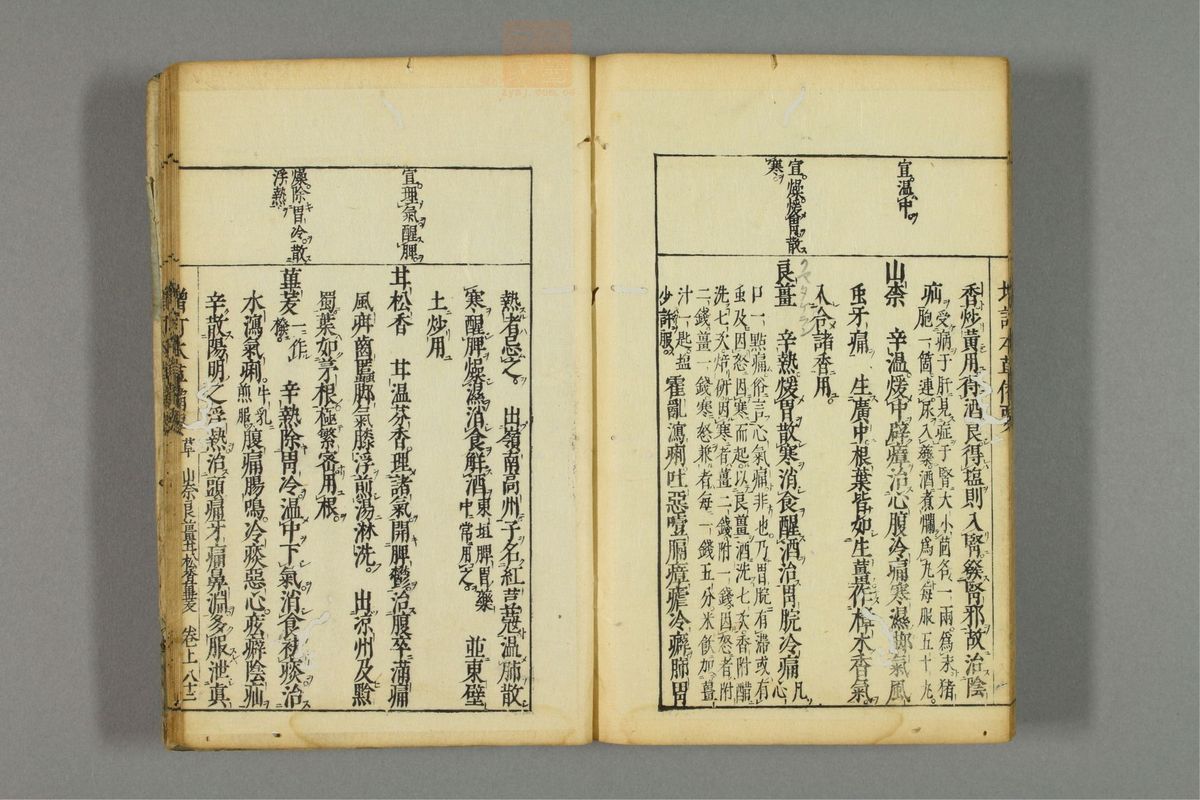 宜溫中
香炒黃用得酒良得塩則入腎發腎邪故治陰
疝受病于肝見症于腎大小茴各一兩為末猪
胞一箇連尿入藥酒煮爛為丸每服五十丸
山柰 辛溫煖中辟瘴治心腹冷痛寒濕霍亂風
虫牙痛 生廣中根葉皆如生薑作樟木香氣
入合諸香用
宜燥煖胃散
寒
良薑 辛熱煖胃散寒消食醒酒治胃脘冷痛凡心
口一點痛俗言心氣痛非也乃胃脘有滯或有
虫及因怒因寒而起以良薑酒洗七次香附醋
洗七次焙研因寒者薑二錢附一錢因怒者附
二錢薑一錢寒怒兼者每一錢五分米飲加薑
汁一匙塩
少許服 霍亂瀉痢吐惡噎膈瘴瘧冷癖肺胃
熱者忌之 出嶺南高州子名紅荳蔻溫肺散
寒醒脾燥濕消食解酒東垣脾胃藥中常用之 並東壁
土炒用
宜理氣醒脾
甘松香 甘溫芬香理諸氣開脾鬱治腹卒滿痛
風疳齒䘌脚氣膝浮煎湯淋洗 出凉州及黔
蜀葉如茅根極繁密用根
燥除胃冷散
浮熱
蓽茇一作 辛熱除胃冷溫中下氣消食祛痰治
水瀉氣痢牛乳煎服腹痛腸鳴冷痰惡心痃癖陰疝
辛散陽明之浮熱治頭痛牙痛鼻淵多服泄真
草 山柰良薑甘松香蓽茇 卷上 八十二